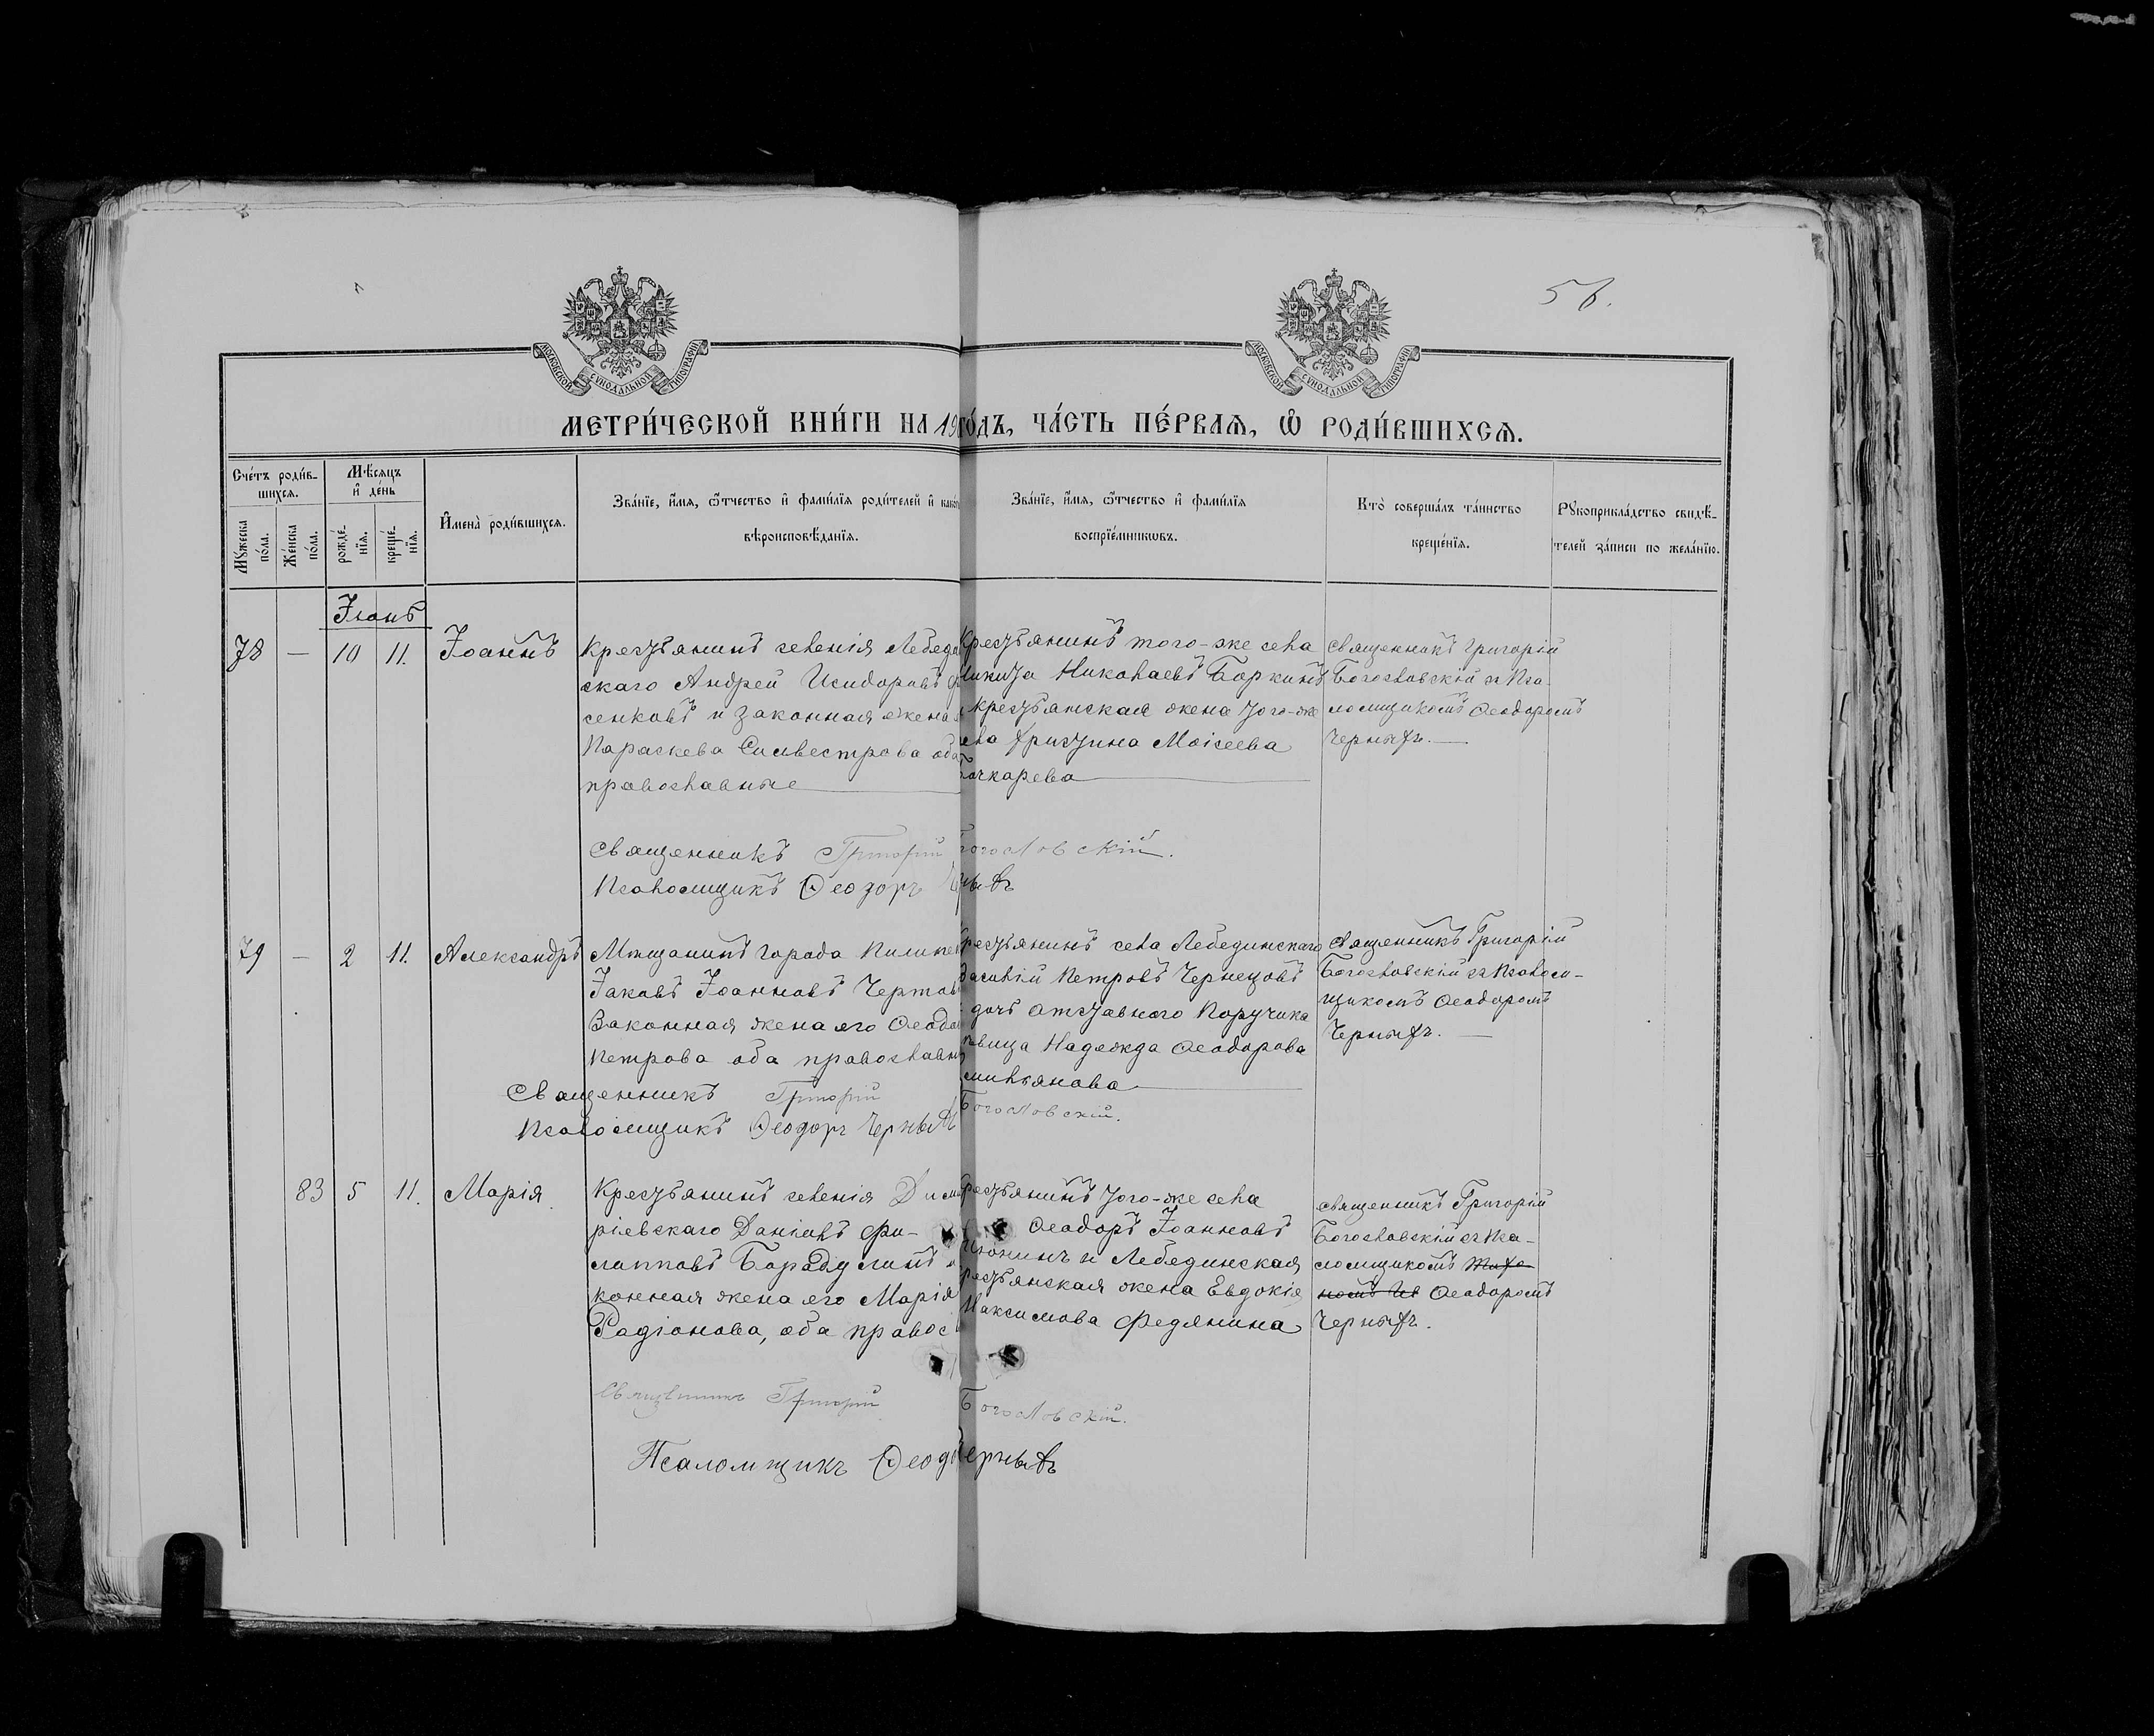 56.
МОСКОВСКОЙ СѴНОДАЛЬНОЙ ТИПОГРАФІИ
МОСКОВСКОЙ СѴНОДАЛЬНОЙ ТИПОГРАФІИ
МЕТРИ́ЧЕСКОЙ КНИ́ГИ НА 19 ГО́ДЪ, ЧА́СТЬ ПЕ́РВАѦ, Ѡ҆ РОДИ́ВШИХСѦ.
Сче́тъ роди́в-
шихсѧ.
Мꙋ́жеска по́ла.
Же́нска по́ла.
Мѣ́сѧцъ
и҆ де́нь
рожде́-
нїѧ.
креще́-
нїѧ.
И҆мена̀ роди́вшихсѧ.
Зва́нїе, и҆́мѧ, ѻ҆́тчество и҆ фами́лїѧ роди́телей и҆
вѣроисповѣ́данїѧ.
Зва́нїе, и҆́мѧ, ѻ҆́тчество и҆ фами́лїѧ
воспрїе́мникѡвъ.
Кто̀ соверша́лъ та́инство
креще́нїѧ.
Рꙋкоприкла́дство свидѣ́-
телей за́писи по жела́нїю.
Іюнь
78 — 10 11. Іоаннъ
Крестьянинъ селенія Лебеди
скаго Андрей Исидоровъ
сенковъ и законная жена
Параскева Сильвестрова оба
православные
Крестьянинъ того-же села
Никита Николаевъ Боркинъ
крестьянская жена того-же
села Христина Моісеева
Бочкарева
Священникъ Григорій
Богословскій съ Пса-
ломщикомъ Ѳеодоромъ
Черныхъ.
Священникъ Григорій Богословскій.
Псаломщикъ Ѳеодоръ Черныхъ
79 — 2 11. Александръ
Мѣщанинъ города
Іаковъ Іоанновъ
Законная жена его
Петрова оба православн
Крестьянинъ села Лебединскаго
Василій Петровъ Чернецовъ
дочь отставного Поручика
дѣвица Надежда Ѳеодорова
Священникъ Григорій
Богословскій съ Псалом-
щикомъ Ѳеодоромъ
Черныхъ.
Священникъ Григорій Богословскій.
Псаломщикъ Ѳеодоръ Черныхъ
83 5 11. Марія.
Крестьянинъ селенія Дими
ріевскаго Даніилъ Фи-
липповъ Бородулинъ
конная жена его Марія
Радіонова, оба правос
Крестьянинъ того-же села
Ѳеодоръ Іоанновъ
и Лебединская
крестьянская жена Евдокія
Максимова Федянина
Священникъ Григорій
Богословскій съ Пса-
ломщикомъ
Ѳеодоромъ
Черныхъ.
Священникъ Григорій Богословскій.
Псаломщикъ Ѳеодоръ Черныхъ